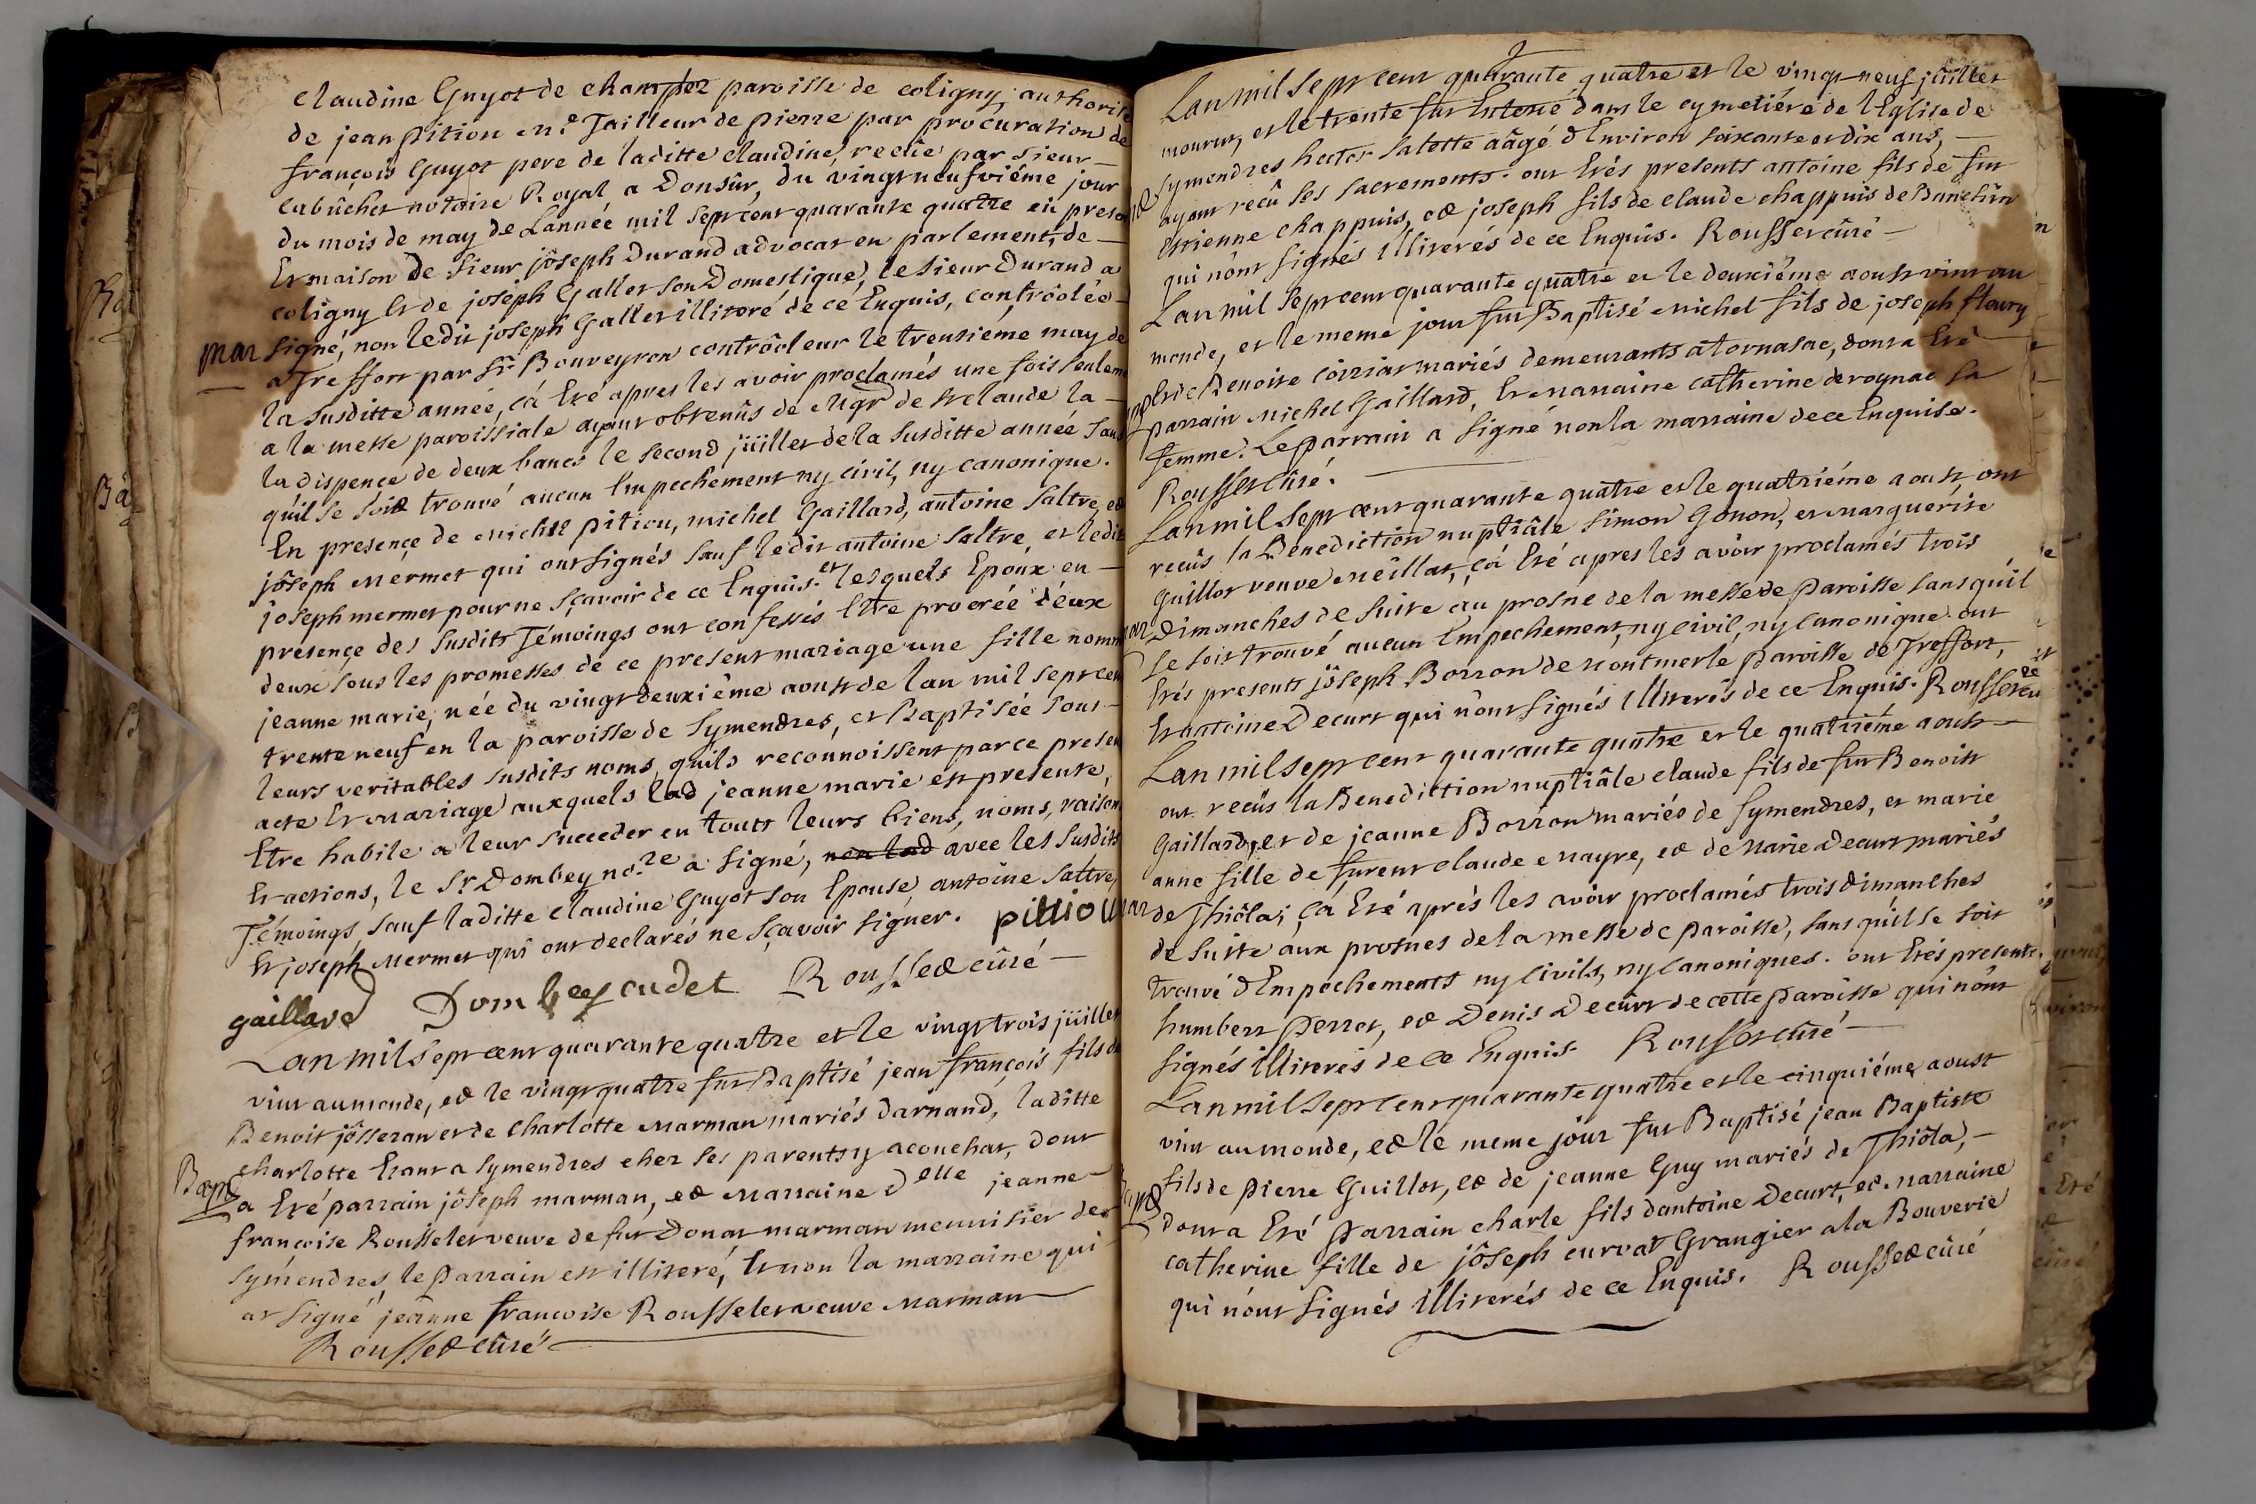 claudine Guyot de champtez paroisse de coligny authorisé
de jean pition me. Tailleur de pierre par procuration de
françois Guyot pere de laditte claudine, recûe par sieur
cabûchet notaire Royal a Donsûr, du vingtneufviéme jour
du mois de may de Lannée mil sept cent quarante quatre en presen
Et maison de sieur jôseph Durand advocat en parlement, de
coligny Et de joséph Gallet son Domestique, le sieur Durand a
mar signé, non ledit joseph Gallet illiteré de ce Enquis, contrôolée
a Treffort par sr. Bouveyron contrôoleur le trentieme may de
la susditte année, çà Eté apres les avoir proclamés une fois seulem
a la messe paroissiale ayant obtenûs de Mgr de st claude la
la dispence de deux bancs le second jüillet de la susditte année sans
quil se soit trouvé aucun Empechement ny civil, ny canonique.
En presençe de michel pition, michel Gaillard, antoine saltre, et
jôseph mermet qui ont signés sauf ledit antoine saltre, et ledit
joseph mermet pour ne sçavoir de ce Enquis. et lesquels Epoux en
présençe des susdits Témoings ont confessés Etre procrée d'eux
deux sous les promesses de ce present mariage une fille nomm
jeanne marie, née du vingt deuxiéme aoust de lan mil sept cen
trente neuf en la paroisse de symendres, et Baptisée sous
leurs veritables susdits noms, quils reconnoissent par ce presen
acte Et mariage auxquels lad jeanne marie est presente,
Etre habile a leur succeder en touts leurs biens, noms, raisons
Et actions, le sr. Dombey nore. a signé, non lad avec les susdits
Témoings, sauf laditte claudine Guyot son Epouse, antoine saltre,
Et joseph mermet qui ont declarés ne sçavoir signer. pittiou
gaillard Dombey cadet Rousset cûré
Lan mil sept cent quarante quatre et le vingt trois jüillet
vint au monde, et le vingt quatre fut Baptisé jean françois fils de
Benoit jôsseran et de charlotte marman mariés darnand, laditte
charlotte Etant a symendres chez ses parents y acouchat, dont
Bapt a Eté parrain jôseph marman, et marraine delle jeanne
françoise Rousselet veuve de fut Donat marman menuisier de
symendres, le parrain est illiteré, Et non la marraine qui
at signé jeanne françoise Rousselet veuve marman
Rousset cûré
Lan mil sept cent quarante quatre et le vingt neuf jüillet
mourut, et le trente fut Enterré dans le cymetiére de l'Eglise de
symendres hector salette aâgé d'Environ soixante et dix ans,
ayant recû ses sacrements. ont Etés presents antoine fils de fut
Etienne chappuis, et joseph fils de claude chappuis de Banchin
qui nônt signés illiterés de ce Enquis. Rousset cûré
Lan mil sept cent quarante quatre et le deuxiéme aoust vint au
monde, et le meme jour fut Baptisé michel fils de joseph fleury
Et de Benoite corriat mariés demeurants a tornasac, dont a Eté
parrain michel Gaillard, Et marraine catherine derognat sa
femme. Le parrain a signé non la marraine de ce Enquise.
Rousset cûré.
Lan mil sept cent quarante quatre et le quatriéme aoust, ont
recûs la Benediction nuptiâle simon Gonon, et marguérite
Guillot veuve meillat, çà Eté apres les avôir proclamés trois
mar Dimanches de suite au prosne de la messe de paroisse sans quil
se soit trouvé aucun Empechement, ny civil, ny canonique. ont
Etés presents jôseph Borron de montmerle paroisse de Treffort,
Et antoine Decurt qui nônt signés illiterés de ce Enquis. Rousset cu
re
Lan mil sept cent quarante quatre et le quatriéme aoust
ont recûs la Benediction nuptiâle claude fils de fut Benoist
Gaillard, et de jeanne Borron mariés de symendres, et marie
anne fille de furent claude mayre, et de marie Decurt mariés
mar de Thiôla; çà Eté aprés les avôir proclamés trois dimanches
de suite aux prosnes de la messe de paroisse, sans quil se soit
trouvé d'Empechements ny civils, ny canoniques. ont Etés presents
humbert perrot, et Denis Decurt de cette paroisse qui nônt
signés illiterés de ce Enquis. Rousset cûré
Lan mil sept cent quarante quatre et le cinquiéme aoust
vint au monde, et le meme jôur fut Baptisé jean Baptiste
fils de pierre Guillot, et de jeanne Guy mariés de Thiôla,
dont a Eté parrain charle fils dantoine Decurt, et marraine
catherine fille de jôseph curvat Grangier a la Bouverie
qui nônt signés illiterés de ce Enquis. Rousset cûré